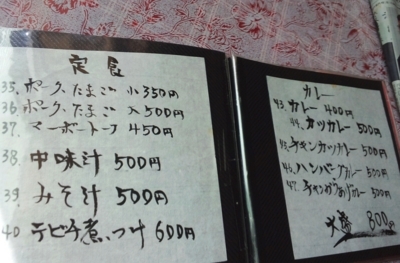 定食
35. ポーク、たまご 小 350円
36. ポーク、たまご 大 500円
37. マーボートーフ 450円
38 中味汁 500円
39. みそ汁 500円
40 テビチ煮つけ 600円
カレー
43. カレー 400円
44. カツカレー 500円
45. チキンカツカレー 500円
46. ハンバーグカレー 500円
47. チャンプカレー 500円
大盛 800円